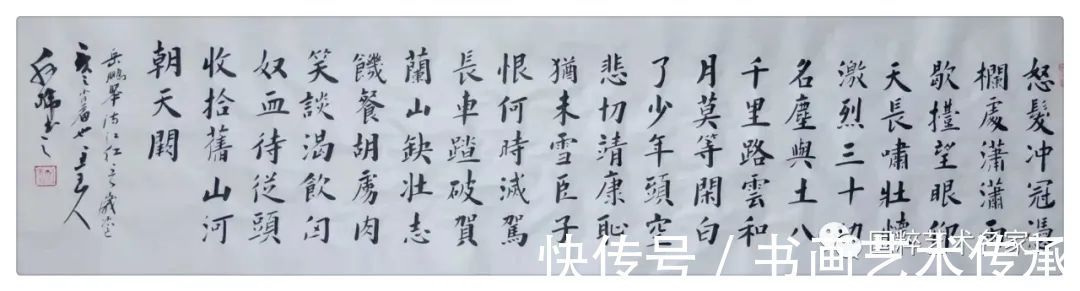 怒髮冲冠馮
欄處瀟瀟雨
歇擡望眼仰
天長嘯壯懷
激烈三十功
名塵與土八
千里路雲和
月莫等閑白
了少年頭空
悲切靖康恥
猶未雪臣子
恨何時滅駕
長車踏破賀
蘭山缺壯志
饑餐胡虜肉
笑談渴飲匈
奴血待從頭
收拾舊山河
朝天闕
岳鵬舉滿江紅
国粹艺术名家
快传号 / 书画艺术传承